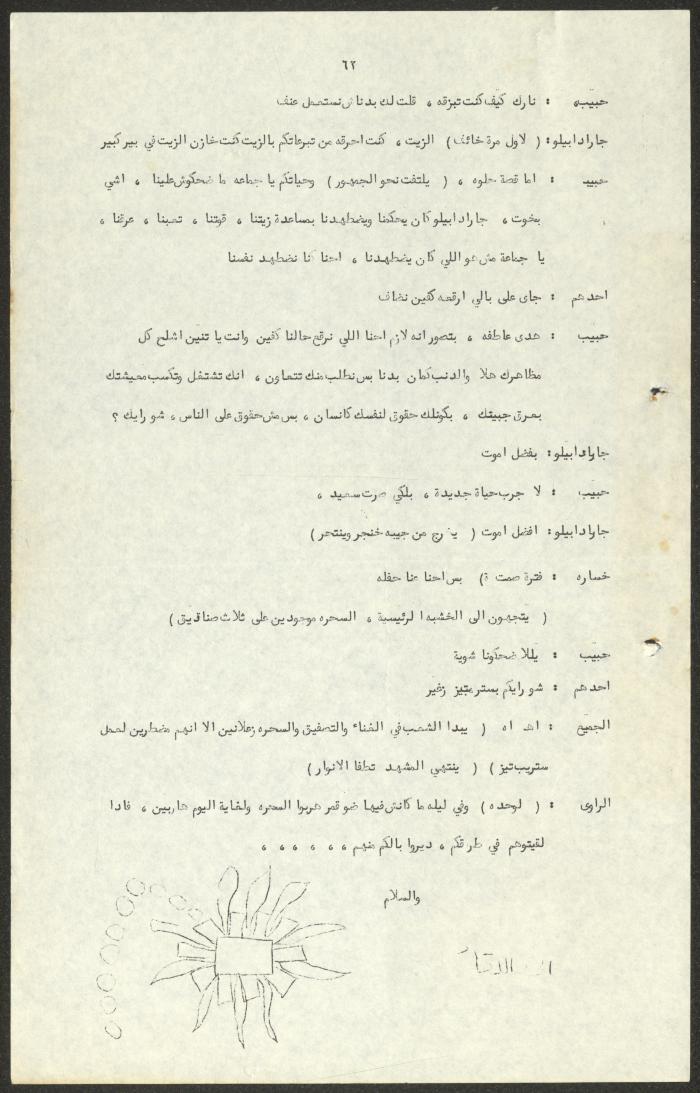 ٦٢
حبيب : نارك كيف كنت تبزقه ، قلت لك بدناش نستعمل عنف
جارادابيلو : ( لاول مرة خائف ) الزيت ، كنت احرقه من تبرعاتكم بالزيت كنت خازن الزيت في بير كبير
حبيب : اما قصة حلوه ، ( يلتفت نحو الجمهور ) وحياتكم يا جماعه ما ضحكوش علينا ، اشي
بخوت ، جارادابيلو كان يحكمنا ويضطهدنا بمساعدة زيتنا ، قوتنا ، تعبنا ، عرقنا ،
يا جماعة مش هو اللي كان يضطهدنا ، احنا كنا نضطهد نفسنا
احدهم : جاى على بالي ارقعه كفين نضاف
حبيب : هدى عاطفه ، بتصور انه لازم احنا اللي نرقع حالنا كفين وانت يا تنين اشلح كل
مظاهرك هلا والدنب كمان بدنا بس نطلب منك تتعاون ، انك تشتغل وتكسب معيشتك
بعرق جبيتك ، بكونلك حقوق لنفسك كانسان ، بس مش حقوق على الناس ، شو رايك ؟
جارادابيلو : بفضل اموت
حبيب : لا جرب حياة جديدة ، بلكي صرت سعيد ،
جارادابيلو : افضل اموت ( يخرج من جيبه خنجر وينتحر )
خساره : فترة صمت ة ) بس احنا عنا حفله
( يتجهون الى الخشبه الرئيسية ، السحره موجودين على ثلاث صناديق )
حبيب : يللا ضحكونا شوية
احدهم : شو رايكم بستربتيز زغير
الجميع : اهـ اه ( يبدا الشعب في الغناء والتصفيق والسحره زعلانين الا انهم مضطرين لعمل
ستريب تيز ) ( ينتهي المشهد تطفا الانوار )
الراوى : ( لوحده ) وفي ليله ما كانش فيها ضو قمر هربوا السحره ولغاية اليوم هاربين ، فاذا
لقيتوهم في طرقكم ، ديروا بالكم منهم ، ، ، ، ، ،
والسلام